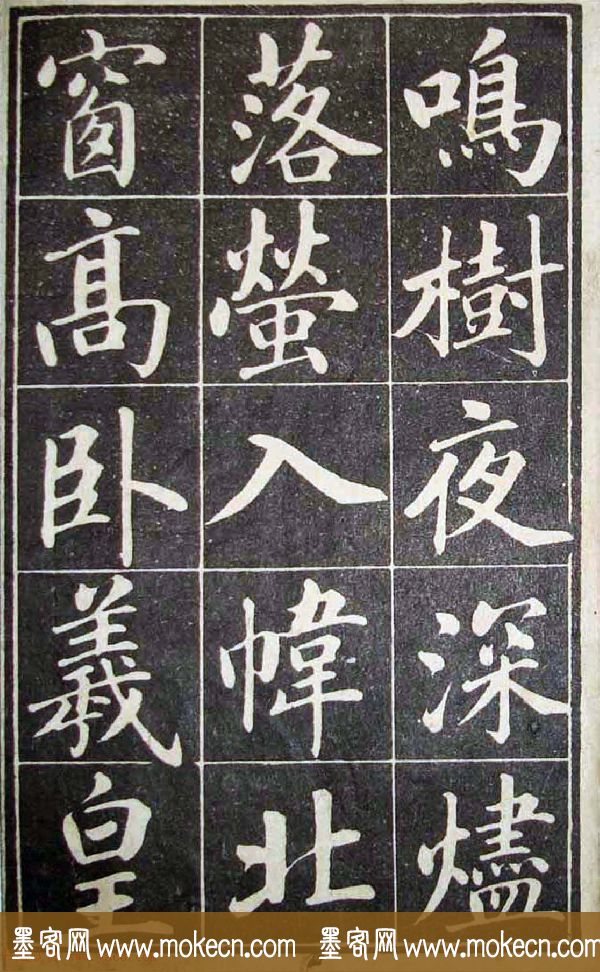 鳴樹夜深燼
落螢入幃北
窗高卧羲皇
墨客网 www.mokecn.com 墨客网 www.mokecn.com